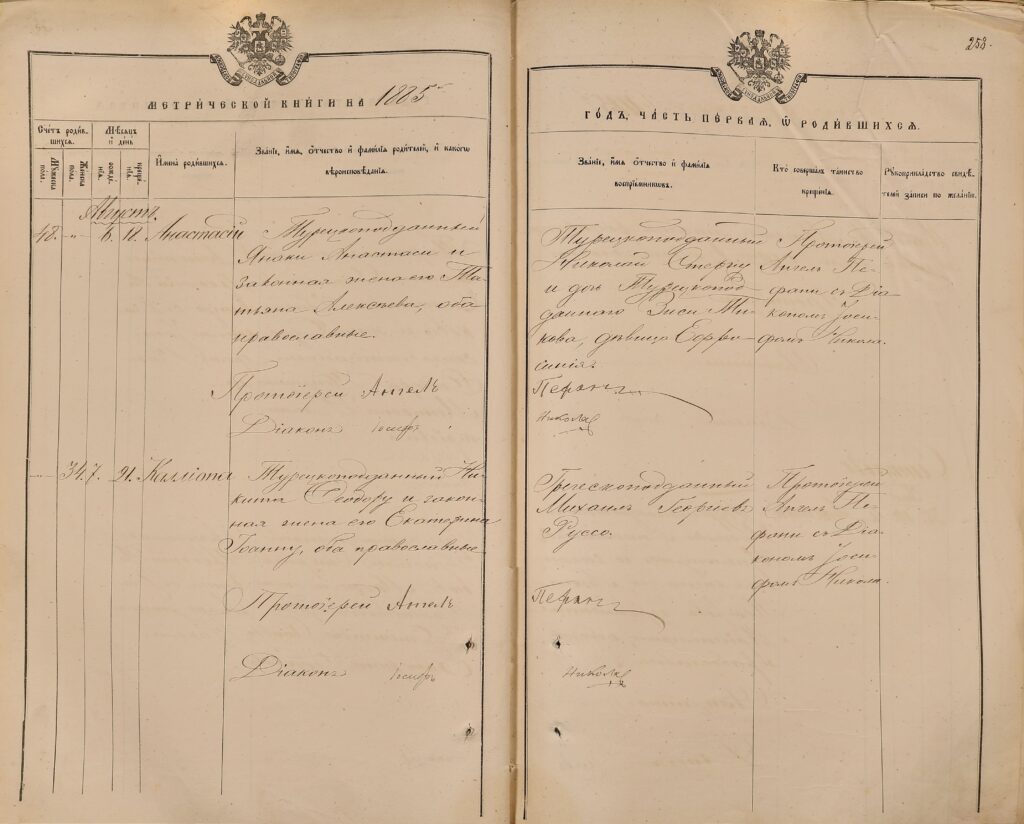 258.
МЕТРИ́ЧЕСКОЙ КНИ́ГИ НА 1885
ГО́ДЪ, ЧА́СТЬ ПЕ́РВАЯ, Ѡ РОДИ́ВШИХСЯ.
Сче́тъ роди́вшихся.
Му́жеска полъ.
Же́нска полъ.
Мѣсяцъ и день
рожде́нія.
креще́нія.
Имена̀ роди́вшихся.
Зва́ніе, имя, о́тчество и фами́лія роди́телей, и како́го
вѣроисповѣ́данія.
Зва́ніе, имя, о́тчество и фами́лія
воспріе́мниковъ.
Кто соверша́лъ та́инство
креще́нія.
Рукоприкла́дство свидѣ́телей за́писи по жела́нію.
Августъ.
48. -"- 6. 18. Анастасій
Турецкоподданный
Янаки Анастаси и
законная жена его Та-
тьяна Алексѣева, оба
православные.
Протоіерей Ангелъ
Діаконъ Іосифъ
Турецкоподданный
Николай Стергіу
и дочь Турецкопод-
даннаго Зиси
кова, дѣвица Ефро-
синія.
Николая
Протоіерей
Ангелъ Пе-
рани съ Діа-
кономъ Іоси-
фомъ Никола.
34. 7. 21. Калліопа
Турецкоподданный Ни-
кита Ѳеодору и закон-
ная жена его Екатерина
Іоанну, оба православные
Протоіерей Ангелъ
Діаконъ Іосифъ
Греческоподданный
Михаилъ Георгіевъ
Руссо.
Николая
Протоіерей
Ангелъ Пе-
рани съ Діа-
кономъ Іоси-
фомъ Никола.